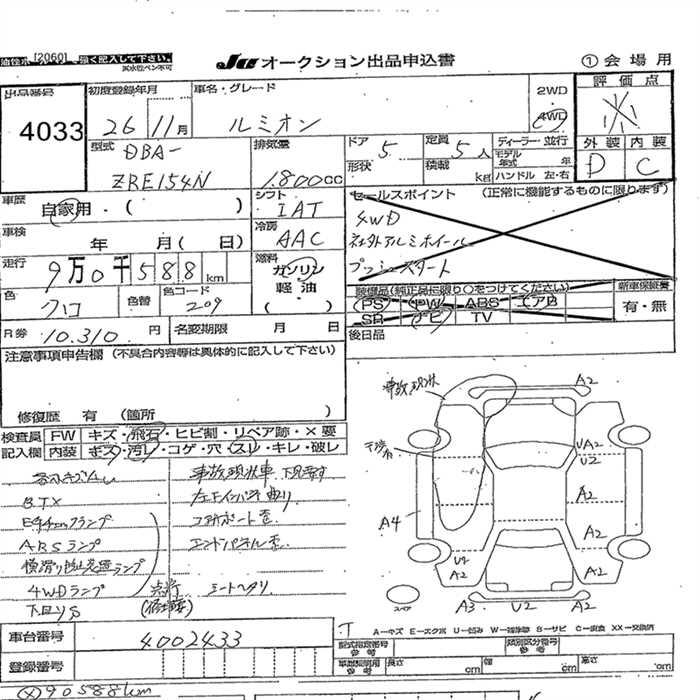 [2060]
強く記入して下さい。
JU オークション出品申込書
① 会場用
出品番号
4033
初度登録年月
26 11月
車名・グレード
ルミオン
2WD
4WD
評価点
外装 内装
D C
型式
DBA-
ZRE154N
排気量
1.800cc
ドア 5
形状
定員 5人
積載 kg
ディーラー・並行
モデル年式 年
ハンドル 左・右
車歴
自家用 ・ ( )
シフト
IAT
セールスポイント (正常に機能するものに限ります)
4WD
社外アルミホイール
プッシュスタート
車検
年 月( 日)
冷房
AAC
走行
9万0千588km
燃料
ガソリン
軽油
( )
装備品(純正品に限り○をつけてください)
新車保証書
PS PW ABS エアB
SR ナビ TV
有・無
色
クロ
色替
色コード
209
R券 10.310 円
名変期限 月 日
後日品
注意事項申告欄 (不具合内容等は具体的に記入して下さい)
修復歴 有 (箇所 )
検査員
記入欄
FW キズ・飛石・ヒビ割・リペア跡・×要
内装 キズ・汚レ・コゲ・穴・スレ・キレ・破レ
事故現状車 下見要す
BTX
コアサポート歪
ABSランプ
エンドパネル歪
4WDランプ 点灯
シートヘタリ
下回りS
事故現状
A2
UA2
U2
A2
A4
A2
U2
A2
A2
A3 U2 A2
スペア
車台番号
4002433
登録番号
T
A－キズ E－エクボ U－凹み W－補修跡 S－サビ C－腐食 XX－交換済
型式指定番号
参考
類別区分番号
参考
車庫証明用
参考
長さ cm 幅 cm 高さ cm
90588km